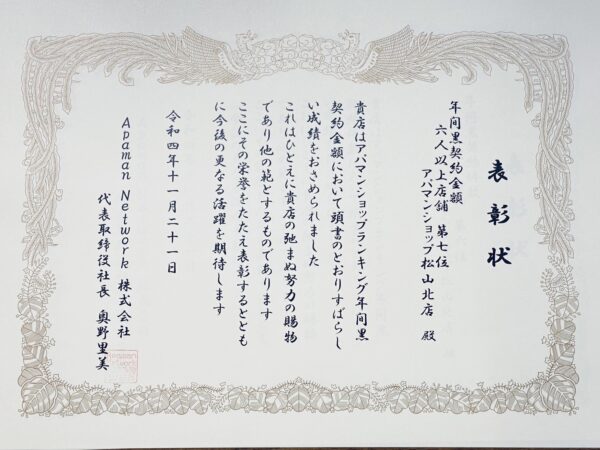 表彰状
年間黒契約金額
六人以上店舗　第七位
アパマンショップ松山北店　殿
貴店はアパマンショップランキング年間黒
契約金額において頭書のとおりすばらし
い成績をおさめられました
これはひとえに貴店の弛まぬ努力の賜物
であり他の範とするものであります
ここにその栄誉をたたえ表彰するととも
に今後の更なる活躍を期待します
令和四年十一月二十一日
Apaman Network 株式会社
代表取締役社長　奥野里美